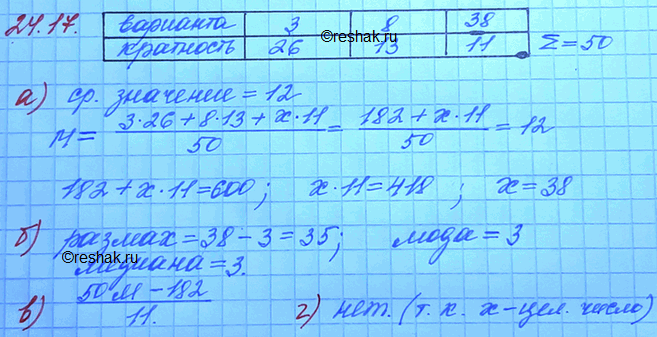 24.17. варианта 3 8 38
кратность 26 13 11 Σ=50
©reshak.ru
а) ср. значение = 12
M = (3·26+8·13+x·11)/50 = (182+x·11)/50 = 12
182+x·11=600; x·11=418; x=38
б) размах = 38-3=35; мода = 3
©reshak.ru
медиана = 3.
в) (50M-182)/11. г) нет. (т. к. x-цел. число)